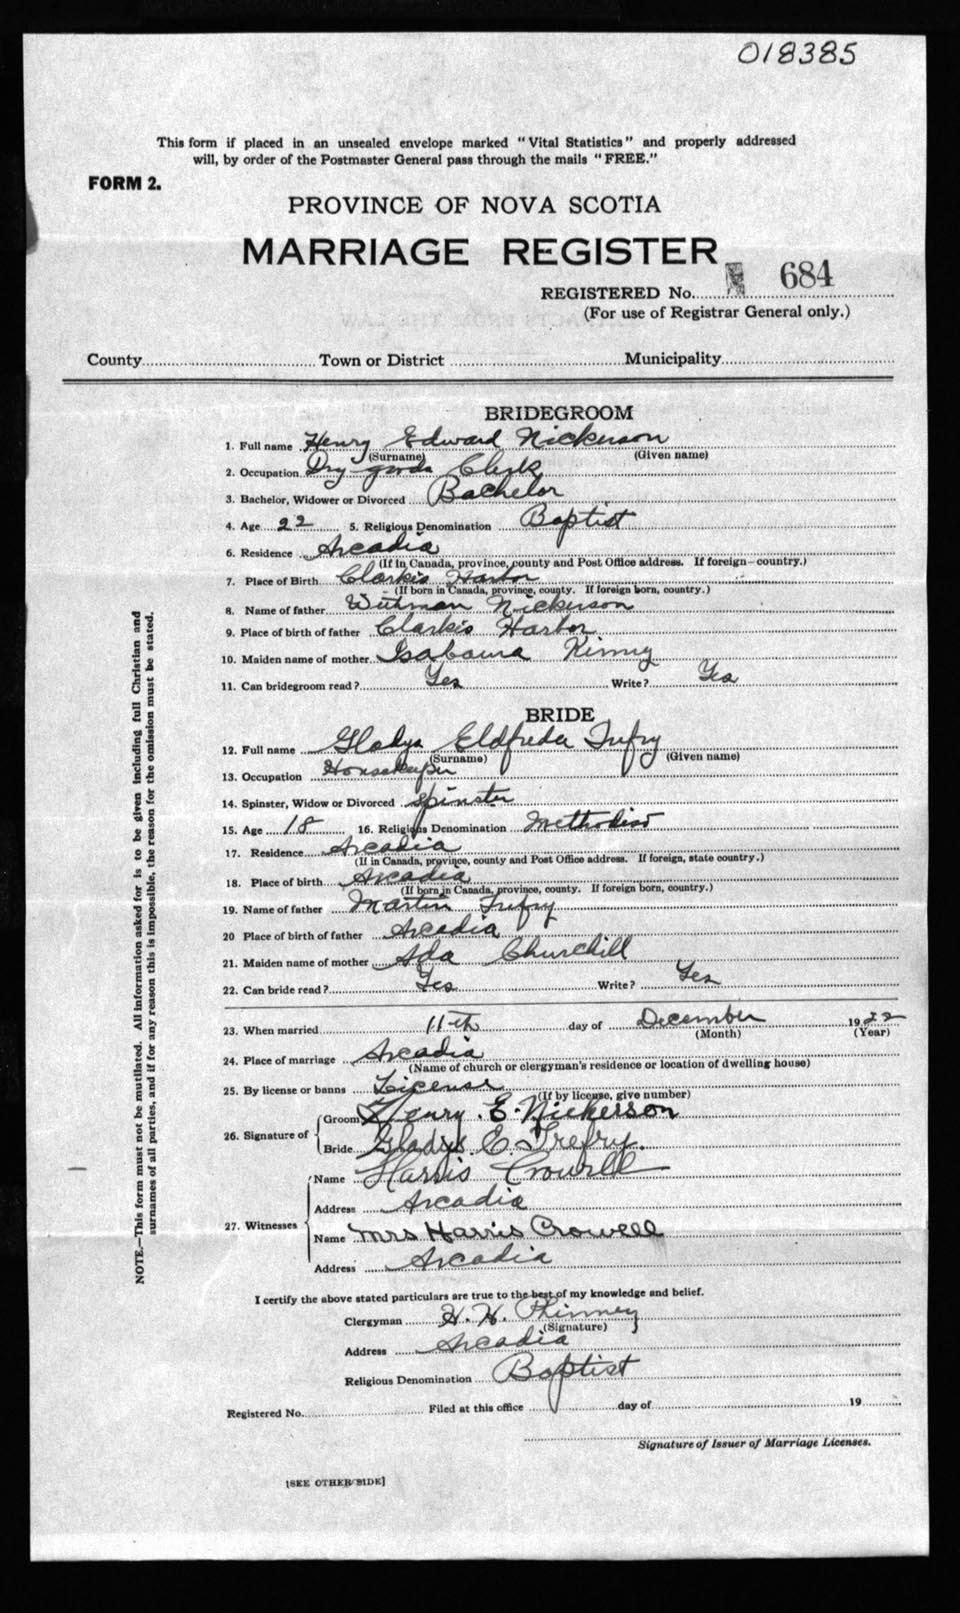 018385
This form if placed in an unsealed envelope marked "Vital Statistics" and properly addressed
will, by order of the Postmaster General pass through the mails "FREE."
FORM 2.
PROVINCE OF NOVA SCOTIA
MARRIAGE REGISTER
REGISTERED No. 684
(For use of Registrar General only.)
County Town or District Municipality
BRIDEGROOM
1. Full name Henry Edward Nickerson
(Surname) (Given name)
2. Occupation Dry goods Clerk
3. Bachelor, Widower or Divorced Bachelor
4. Age 22 5. Religious Denomination Baptist
6. Residence Arcadia
(If in Canada, province, county and Post Office address. If foreign—country.)
7. Place of Birth Clarkis Harbor
(If born in Canada, province, county. If foreign born, country.)
8. Name of father Nickerson
9. Place of birth of father Clarkis Harbor
10. Maiden name of mother Kinny
11. Can bridegroom read? Yes Write? Yes
BRIDE
12. Full name Gladys Eldfreda Trefry
(Surname) (Given name)
13. Occupation Housekeeper
14. Spinster, Widow or Divorced Spinster
15. Age 18 16. Religious Denomination Methodist
17. Residence Arcadia
(If in Canada, province, county and Post Office address. If foreign, state country.)
18. Place of birth Arcadia
(If born in Canada, province, county. If foreign born, country.)
19. Name of father Martin Trefry
20 Place of birth of father Arcadia
21. Maiden name of mother Ada Churchill
22. Can bride read? Yes Write? Yes
23. When married 11th day of December 1922
(Month) (Year)
24. Place of marriage Arcadia
(Name of church or clergyman's residence or location of dwelling house)
25. By license or banns License
(If by license, give number)
26. Signature of Groom Henry. E. Nickerson
Bride Gladys E. Trefry.
27. Witnesses Name Harris Crowell
Address Arcadia
Name Mrs Harris Crowell
Address Arcadia
I certify the above stated particulars are true to the best of my knowledge and belief.
Clergyman H. H. Phinney
(Signature)
Address Arcadia
Religious Denomination Baptist
Registered No. Filed at this office day of 19
Signature of Issuer of Marriage Licenses.
[SEE OTHER SIDE]
NOTE.—This form must not be mutilated. All information asked for is to be given including full Christian and
surnames of all parties, and if for any reason this is impossible, the reason for the omission must be stated.